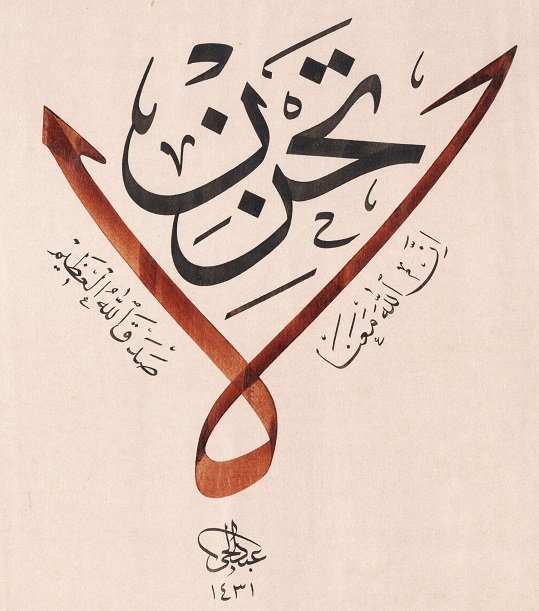 لا تحزن
إِنَّ اللّٰهَ مَعَنَا
صَدَقَ اللّٰهُ الْعَظِيمُ
١٤٣١